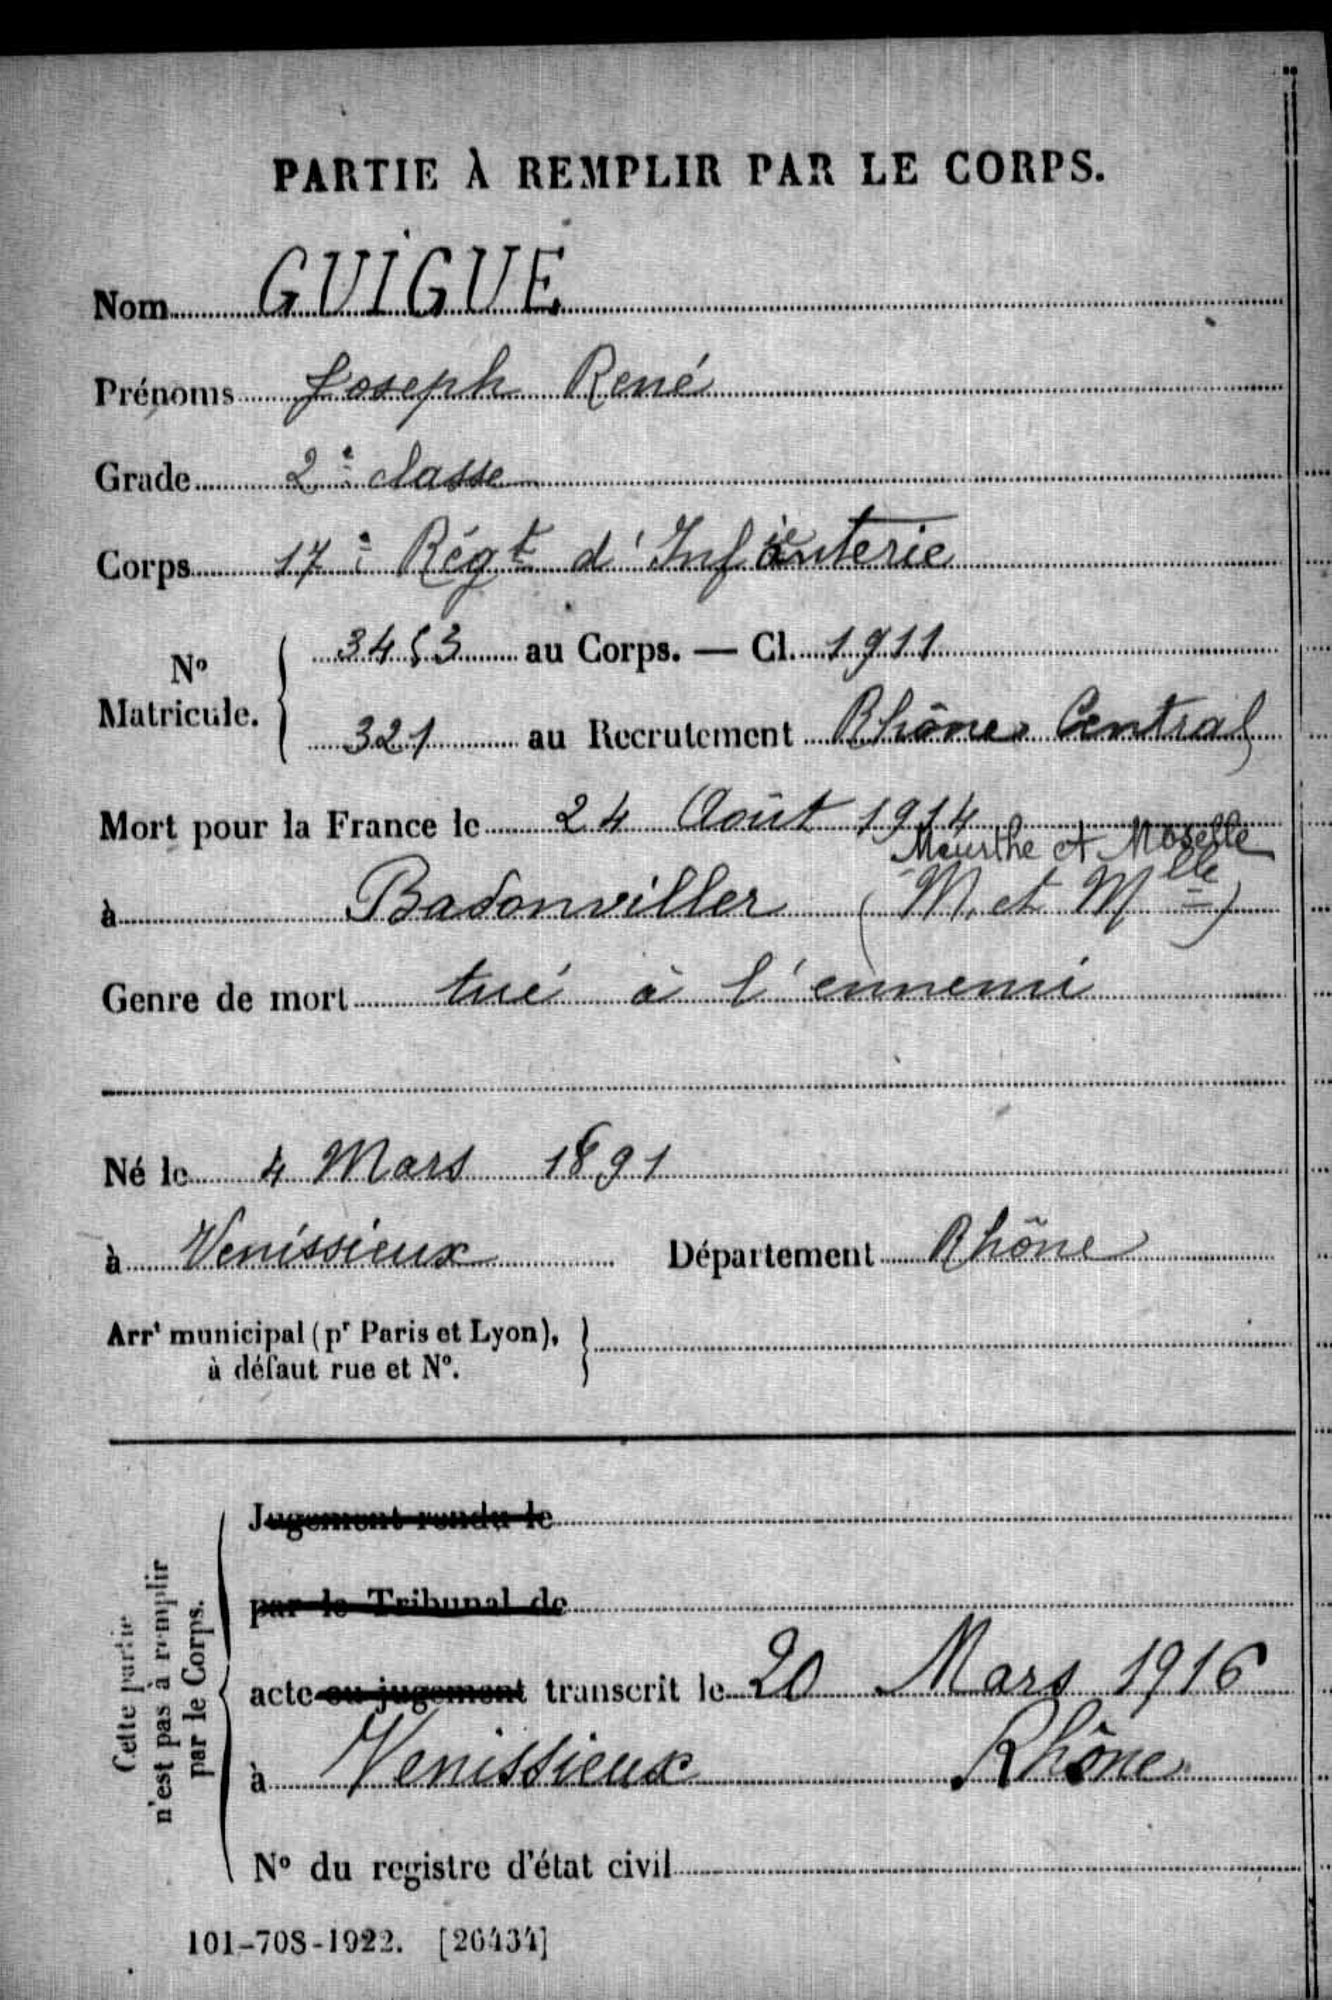 PARTIE À REMPLIR PAR LE CORPS.
Nom GUIGUE
Prénoms Joseph René
Grade 2e classe
Corps 17e Régt d'Infanterie
No Matricule. { 3453 au Corps. — Cl. 1911
321 au Recrutement Rhône Central
Mort pour la France le 24 Août 1914
Meurthe et Moselle
à Badonviller (M. et Mlle)
Genre de mort tué à l'ennemi
Né le 4 Mars 1891
à Venissieux Département Rhône
Arrt municipal (pr Paris et Lyon),
à défaut rue et No.
Jugement rendu le
par le Tribunal de
acte ou jugement transcrit le 20 Mars 1916
à Venissieux Rhône
No du registre d'état civil
Cette partie
n'est pas à remplir
par le Corps.
101-708-1922. [26434]